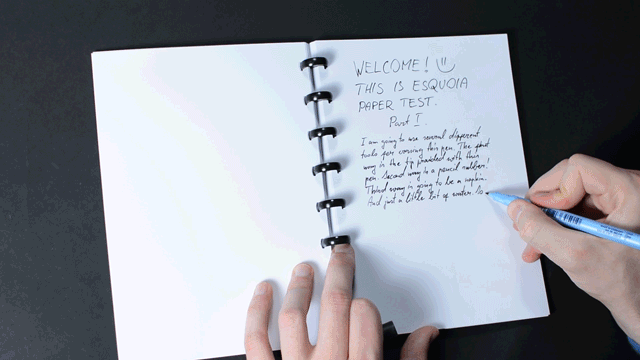 WELCOME! 
THIS IS ESQUOIA
PAPER TEST.
Part I.
I am going to use several different
tools for erasing this pen. The first
way is the tip provided with this
pen. Second way is a pencil rubber!
Third way is going to be a napkin.
And just a little bit of water. So